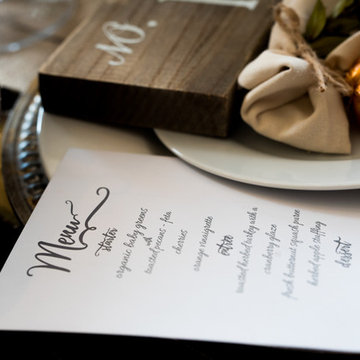 No.
Menu
starter
organic baby greens
with
roasted pecans - feta
cherries
orange vinaigrette
entree
roasted herbed turkey with a
cranberry glaze
fresh butternut squash puree
herbed apple stuffing
dessert